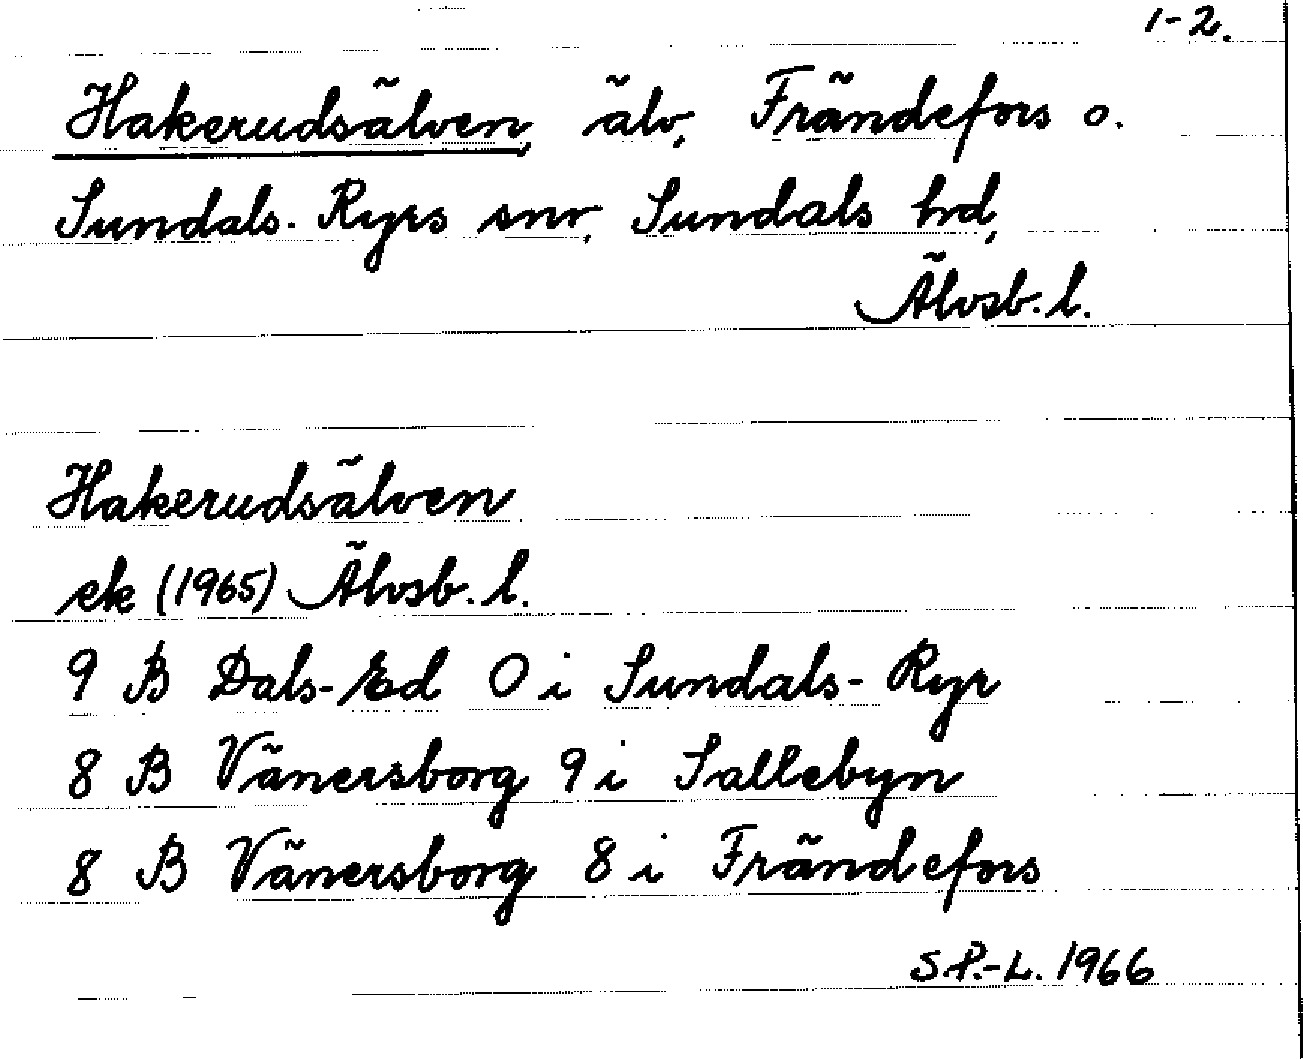 1-2.
Hakerudsälven, älv, Frändefors o.
Sundals-Ryrs snr, Sundals hd,
Älvsb. l.
Hakerudsälven
ek (1965) Älvsb. l.
9 B Dals-Ed 0 i Sundals-Ryr
8 B Vänersborg 9 i Sallebyn
8 B Vänersborg 8 i Frändefors
S P.-L. 1966